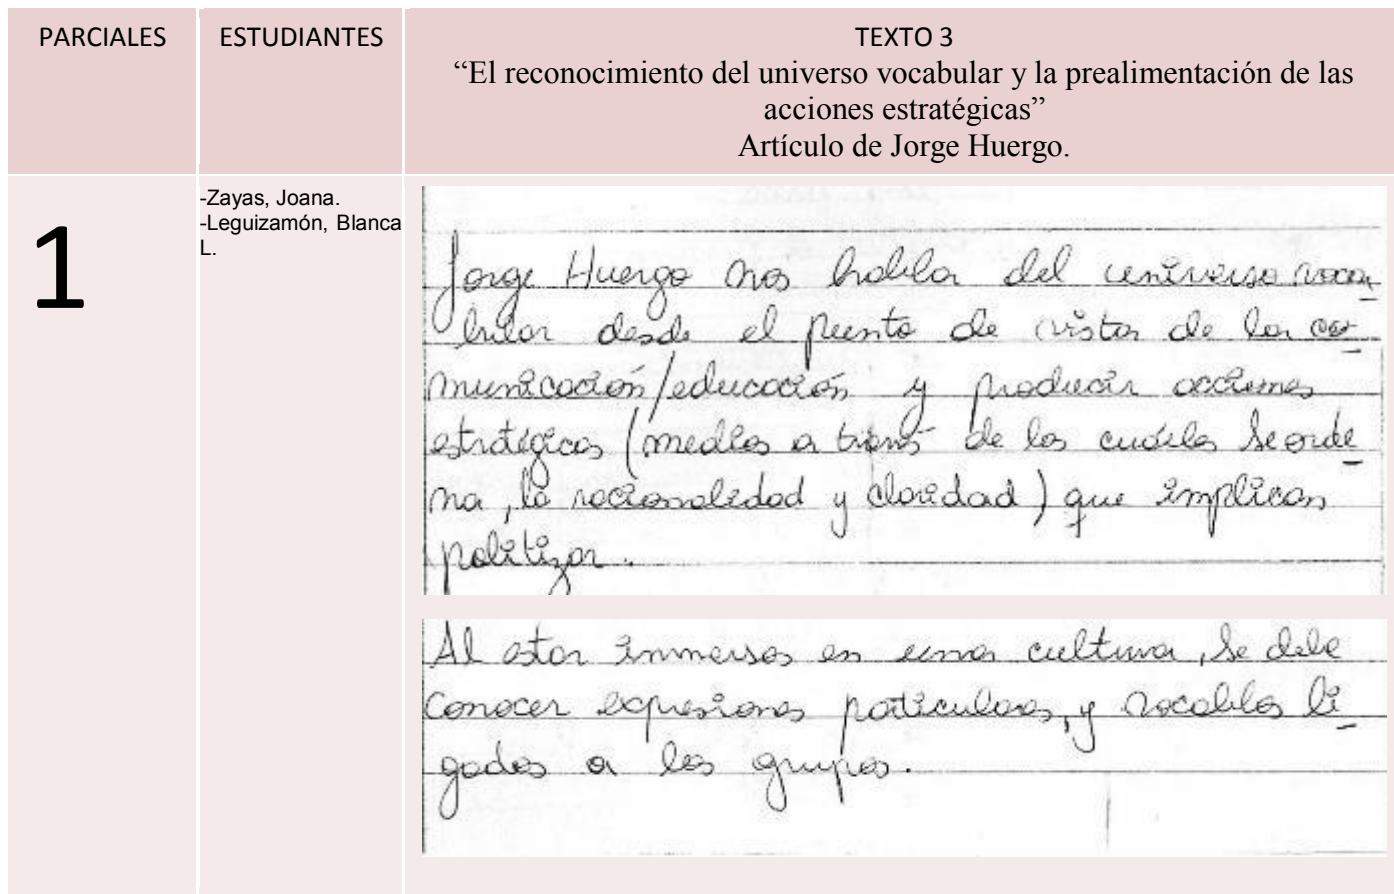 PARCIALES
ESTUDIANTES
TEXTO 3
“El reconocimiento del universo vocabular y la prealimentación de las
acciones estratégicas”
Artículo de Jorge Huergo.
1
-Zayas, Joana.
-Leguizamón, Blanca
L.
Jorge Huergo nos habla del universo voca
bular desde el punto de vista de la co
municación/educación y producir acciones
estratégicas (medios a través de los cuáles se orde
na, la racionalidad y claridad) que implican
politizar.
Al estar inmersos en una cultura, se debe
conocer expresiones particulares, y vocablos li
gados a los grupos.